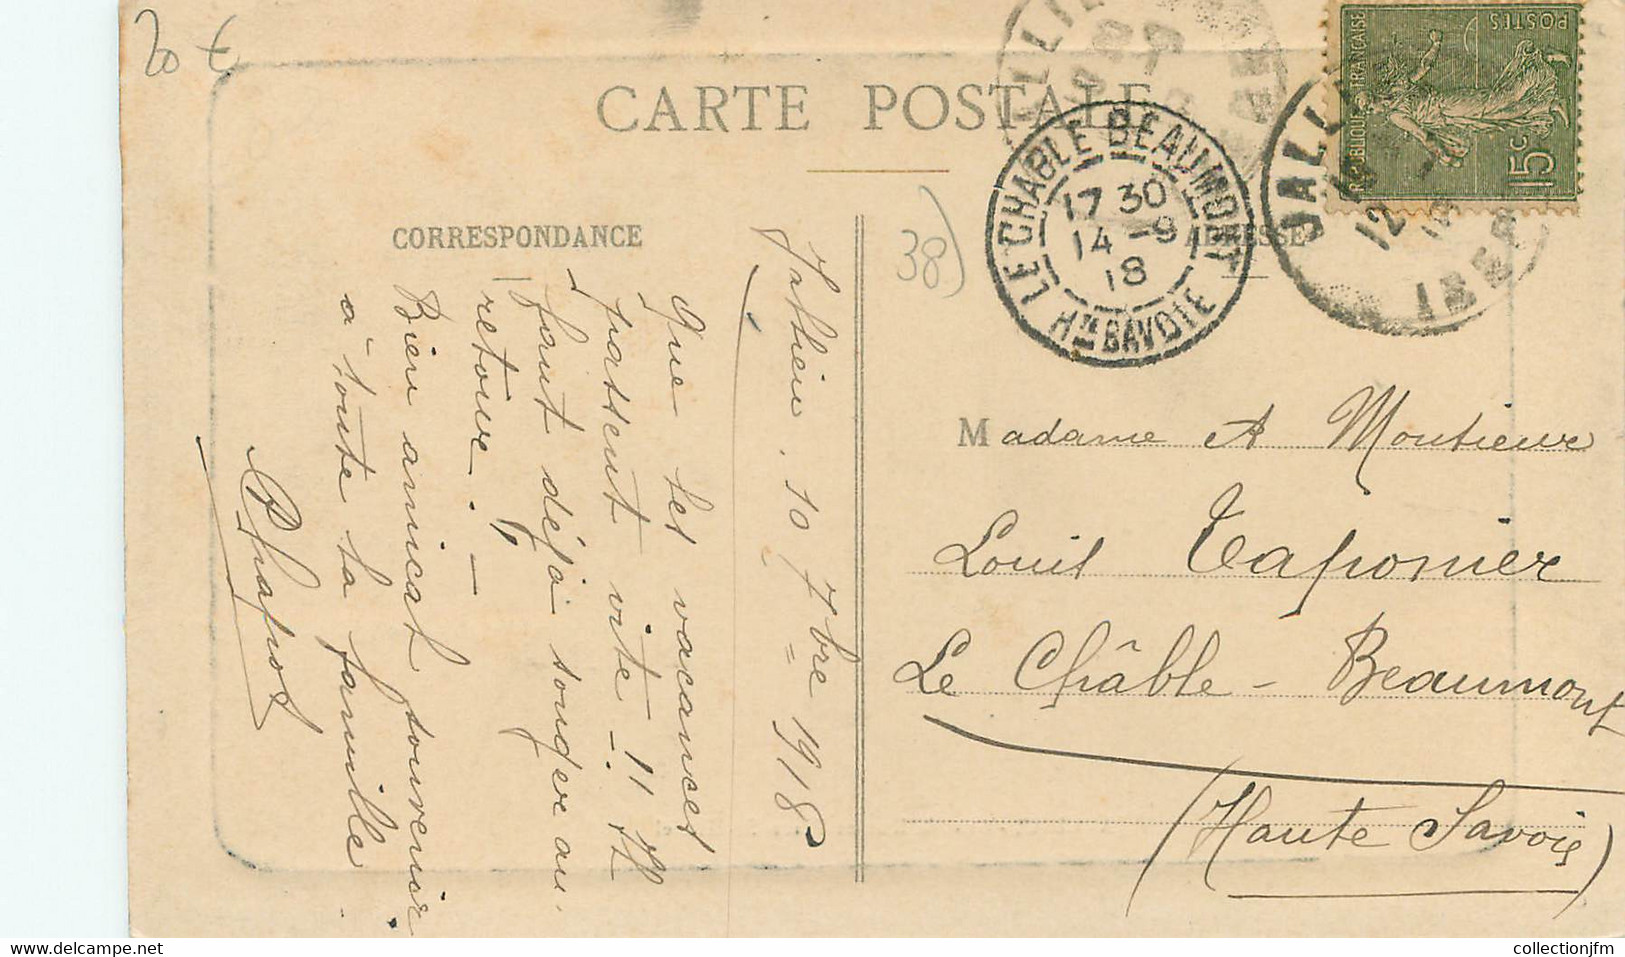 20 €
CARTE POSTALE
CORRESPONDANCE
ADRESSE
38)
RÉPUBLIQUE FRANÇAISE
POSTES
15c
LE CHABLE BEAUMONT
17 30
14 -9
18
Hte SAVOIE
JALLIEU
12
ISERE
Jallieu. 10 7bre 1918
Que les vacances
passent vite - !! Il
faut déjà songer au
retour. -
Bien amical souvenir
à toute la famille.
Chapot
Madame & Monsieur
Louis Taponier
Le Châble - Beaumont
(Haute Savoie)
collectionjfm